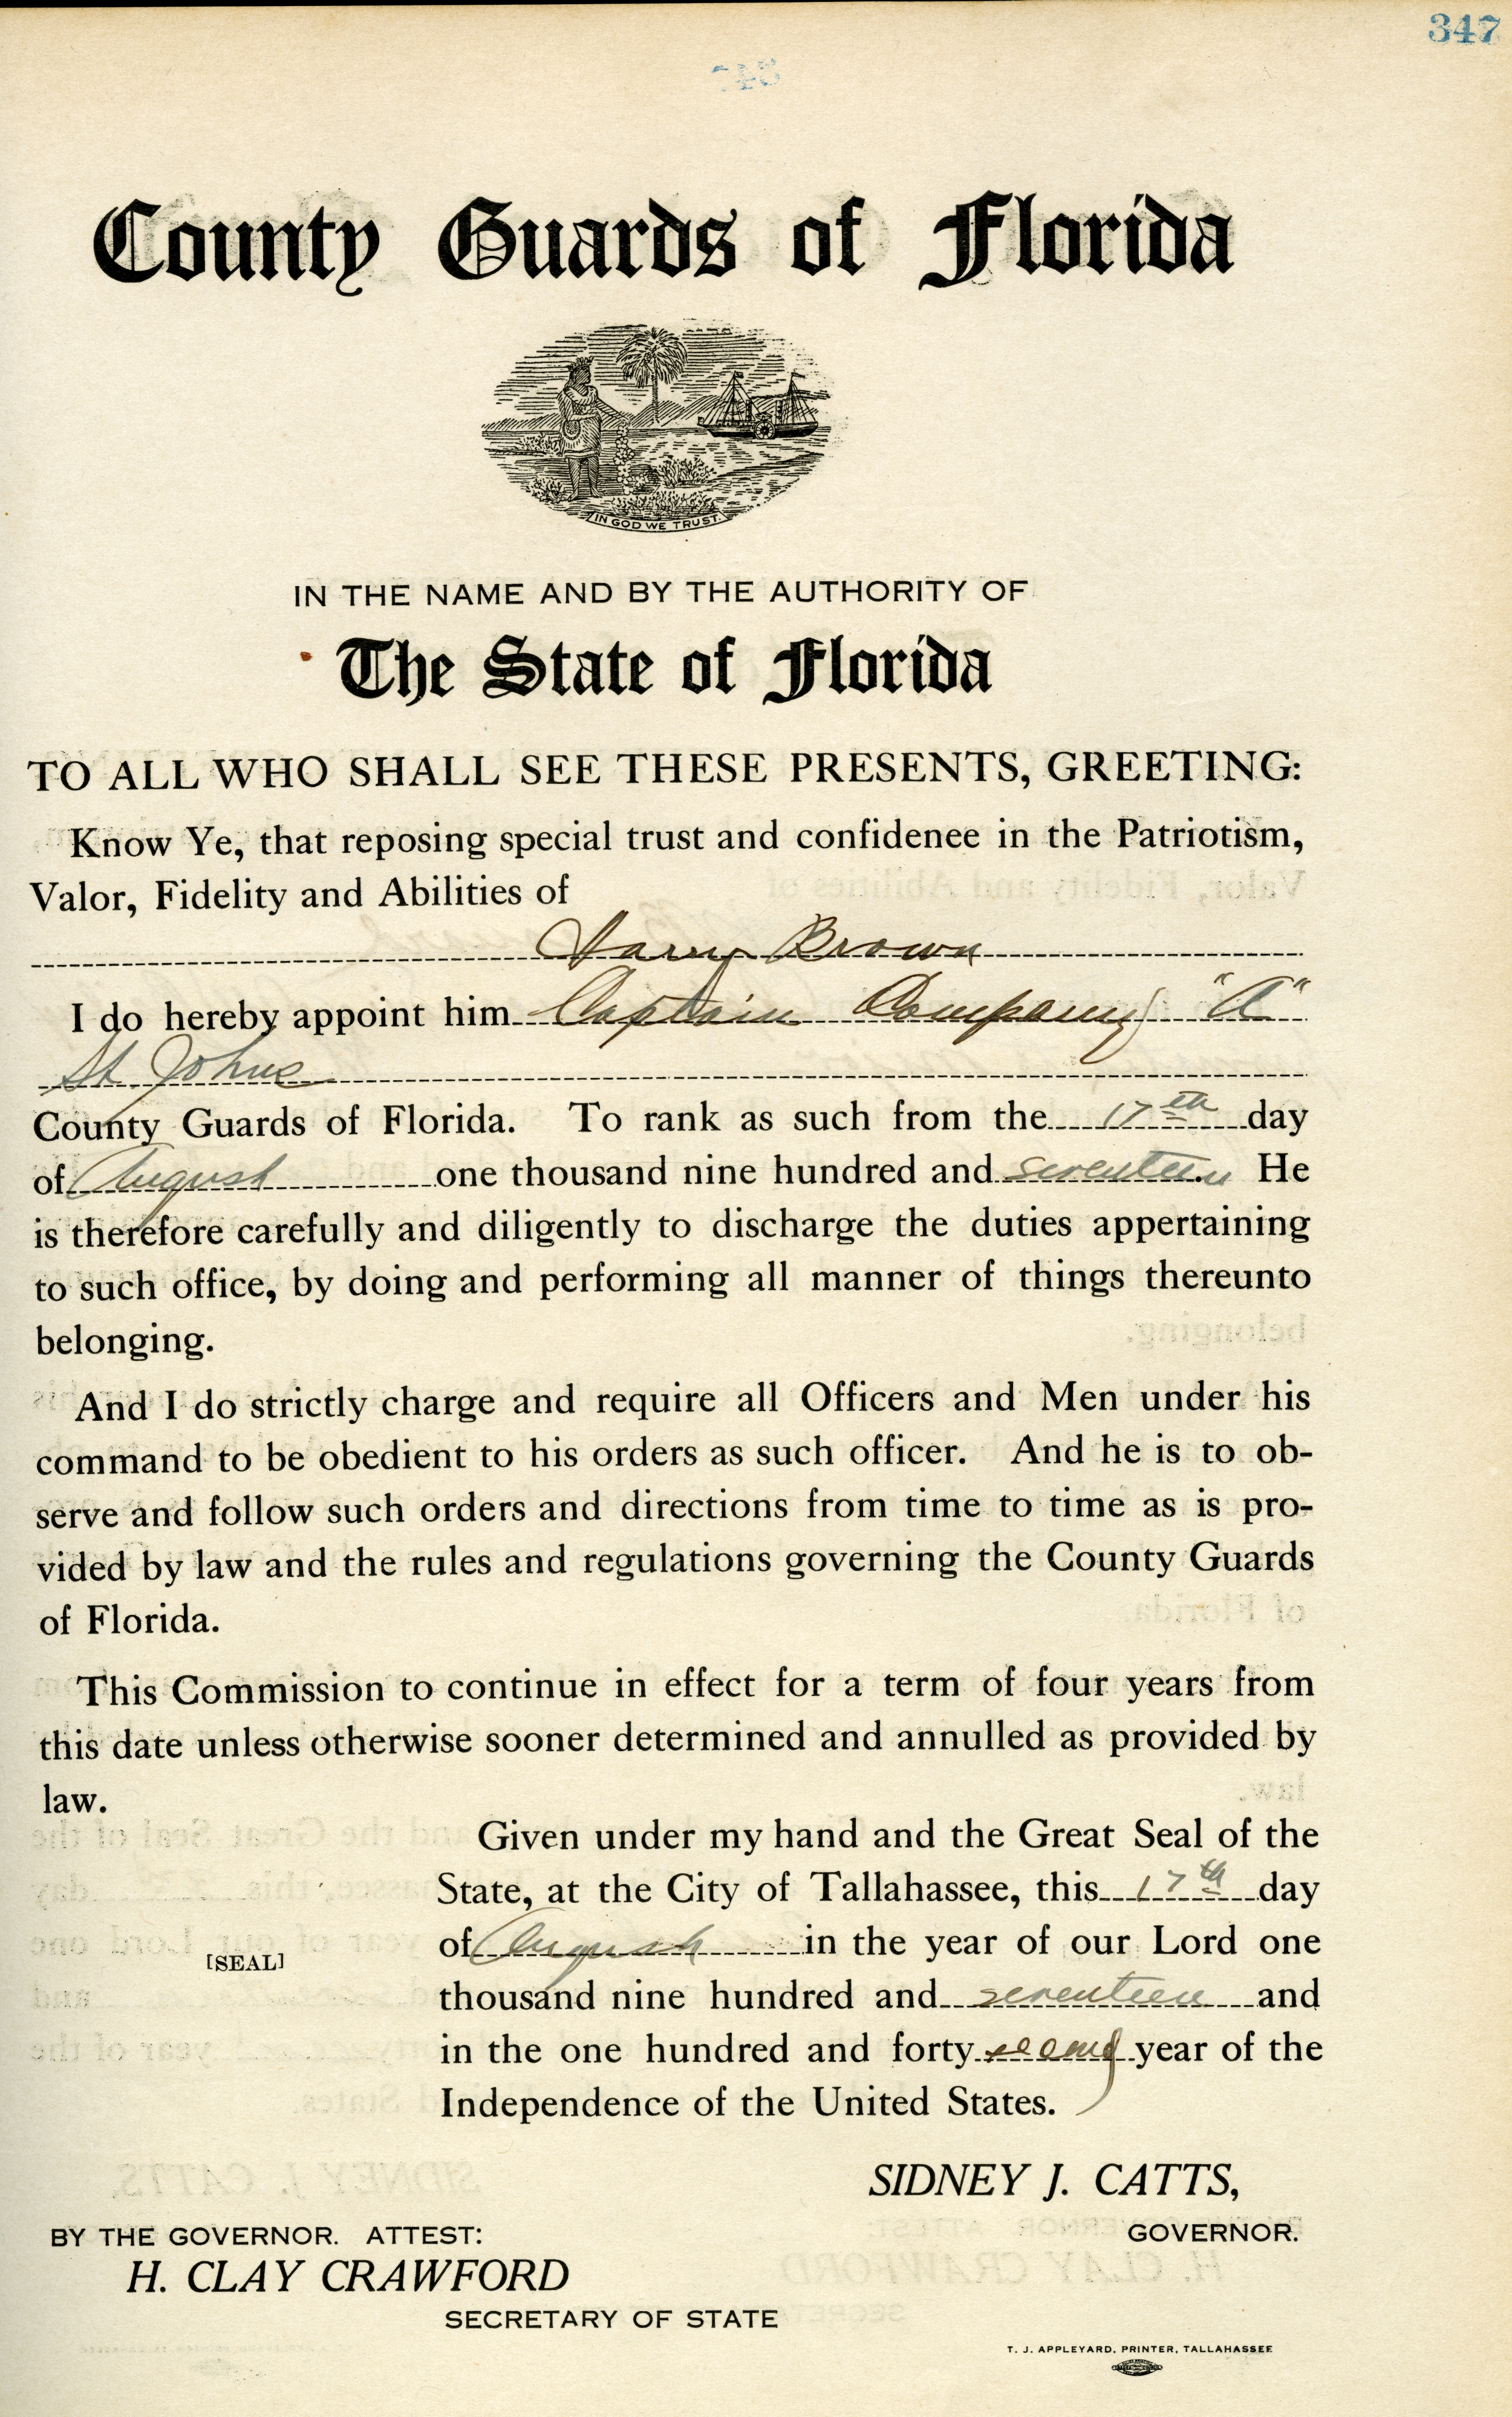 347
County Guards of Florida
IN GOD WE TRUST.
IN THE NAME AND BY THE AUTHORITY OF
The State of Florida
TO ALL WHO SHALL SEE THESE PRESENTS, GREETING:
Know Ye, that reposing special trust and confidenee in the Patriotism,
Valor, Fidelity and Abilities of
Harry Brown
I do hereby appoint him Captain Company "A"
St Johns
County Guards of Florida. To rank as such from the 17th day
of August one thousand nine hundred and seventeen He
is therefore carefully and diligently to discharge the duties appertaining
to such office, by doing and performing all manner of things thereunto
belonging.
And I do strictly charge and require all Officers and Men under his
command to be obedient to his orders as such officer. And he is to ob-
serve and follow such orders and directions from time to time as is pro-
vided by law and the rules and regulations governing the County Guards
of Florida.
This Commission to continue in effect for a term of four years from
this date unless otherwise sooner determined and annulled as provided by
law.
Given under my hand and the Great Seal of the
State, at the City of Tallahassee, this 17th day
of August in the year of our Lord one
[SEAL]
thousand nine hundred and seventeen and
in the one hundred and forty second year of the
Independence of the United States.
SIDNEY J. CATTS,
GOVERNOR.
BY THE GOVERNOR. ATTEST:
H. CLAY CRAWFORD
SECRETARY OF STATE
T. J. APPLEYARD, PRINTER, TALLAHASSEE